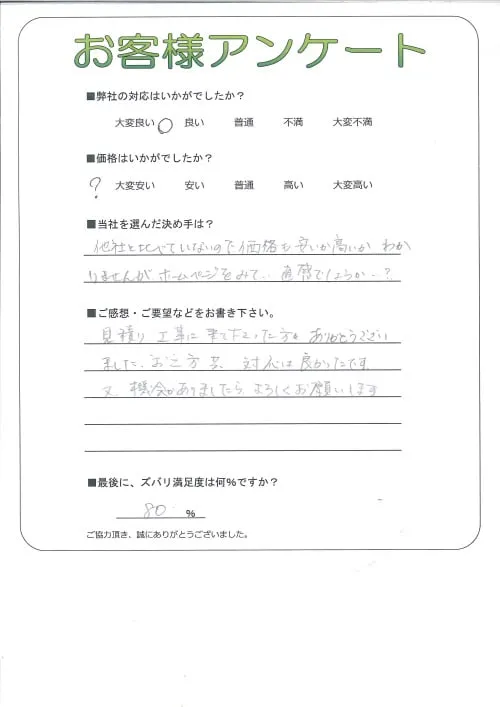 お客様アンケート
■弊社の対応はいかがでしたか？
大変良い ○ 良い 普通 不満 大変不満
■価格はいかがでしたか？
? 大変安い 安い 普通 高い 大変高い
■当社を選んだ決め手は？
他社と比べていないので価格も安いか高いか わか
りませんが ホームページをみて‥ 直感でしょうか‥？
■ご感想・ご要望などをお書き下さい。
見積り 工事に来て下さった方も ありがとうござい
ました。お二方共、対応は良かったです。
又、機会がありましたら よろしくお願いします
■最後に、ズバリ満足度は何%ですか？
80 %
ご協力頂き、誠にありがとうございました。